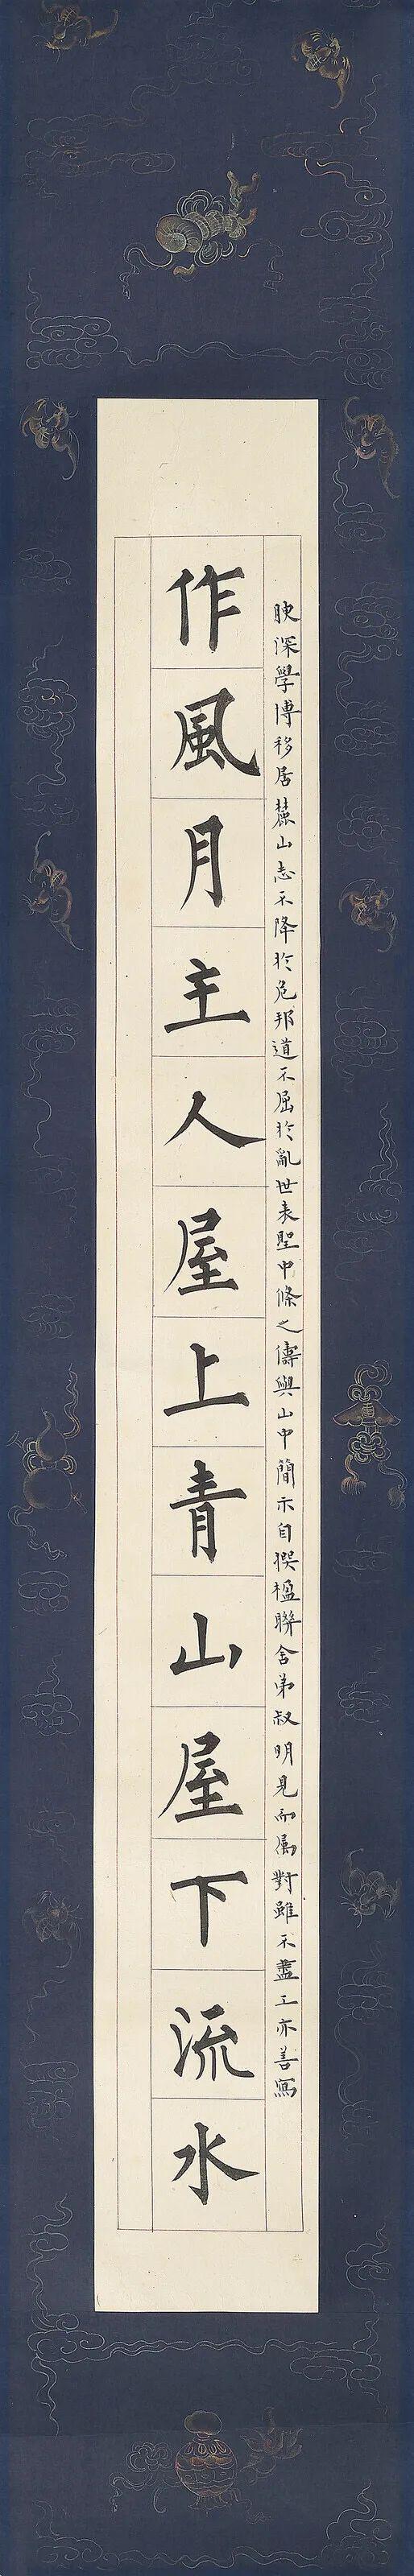 映深學博移居麓山志不降於危邦道不屈於亂世表聖中條之儔與山中簡示自撰楹聯舍弟叔明見而属對雖不盡工亦善寫
作風月主人屋上青山屋下流水